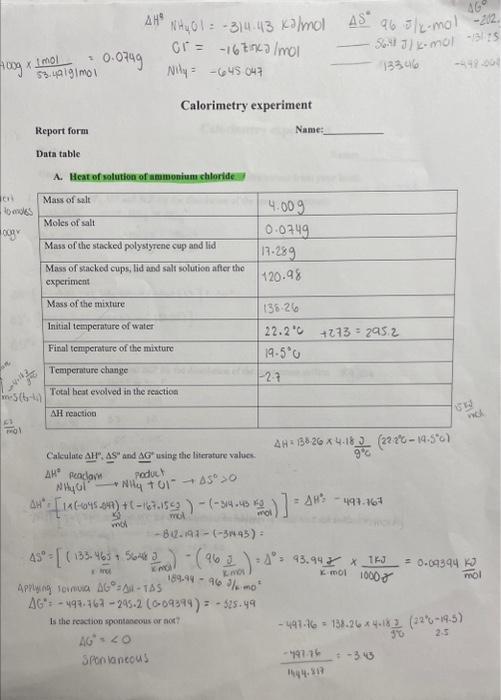 ΔH° NH4Cl = -314.43 KJ/mol ΔS° 96 J/k-mol ΔG° -202.
Cl- = -167 56.48 J/k-mol -131.25
NH4 = -645.047 133.46
4.00g x 1mol / 53.4919/mol = 0.0749
Calorimetry experiment
Report form Name:
Data table
A. Heat of solution of ammonium chloride
to moles
Mass of salt 4.00g
Moles of salt 0.0749
Mass of the stacked polystyrene cup and lid 17.28g
Mass of stacked cups, lid and salt solution after the experiment 120.98
Mass of the mixture 138.26
Initial temperature of water 22.2°C +273 = 295.2
Final temperature of the mixture 19.5°C
Temperature change -2.7
Total heat evolved in the reaction
ΔH reaction
ΔH = 138.26 x 4.18 J/g°C (22.2°C - 19.5°C)
Calculate ΔH°, ΔS° and ΔG° using the literature values.
ΔH° Product
NH4Cl → NH4 + Cl- → ΔS° > 0
ΔH° = [1x(-645.047) + (-167.15 KJ/mol) - (-314.43 KJ/mol)] = ΔH° = -497.767
-812.197 - (-314.43) =
ΔS° = [(133.46 J + 56.48 J/k mol) - (96 J/k mol) = Δ° = 93.94 J/k-mol x 1KJ/1000J = 0.09394 KJ/mol
189.94 - 96 J/k mol
Applying formula ΔG° = ΔH - TΔS
ΔG° = -497.767 - 295.2 (0.09394) = -525.49
Is the reaction spontaneous or not?
ΔG° = <0
Spontaneous
-497.76 = 138.26 x 4.18 J/g°C (22°C - 19.5)
2.5
-497.76 / 1444.817 = -3.43